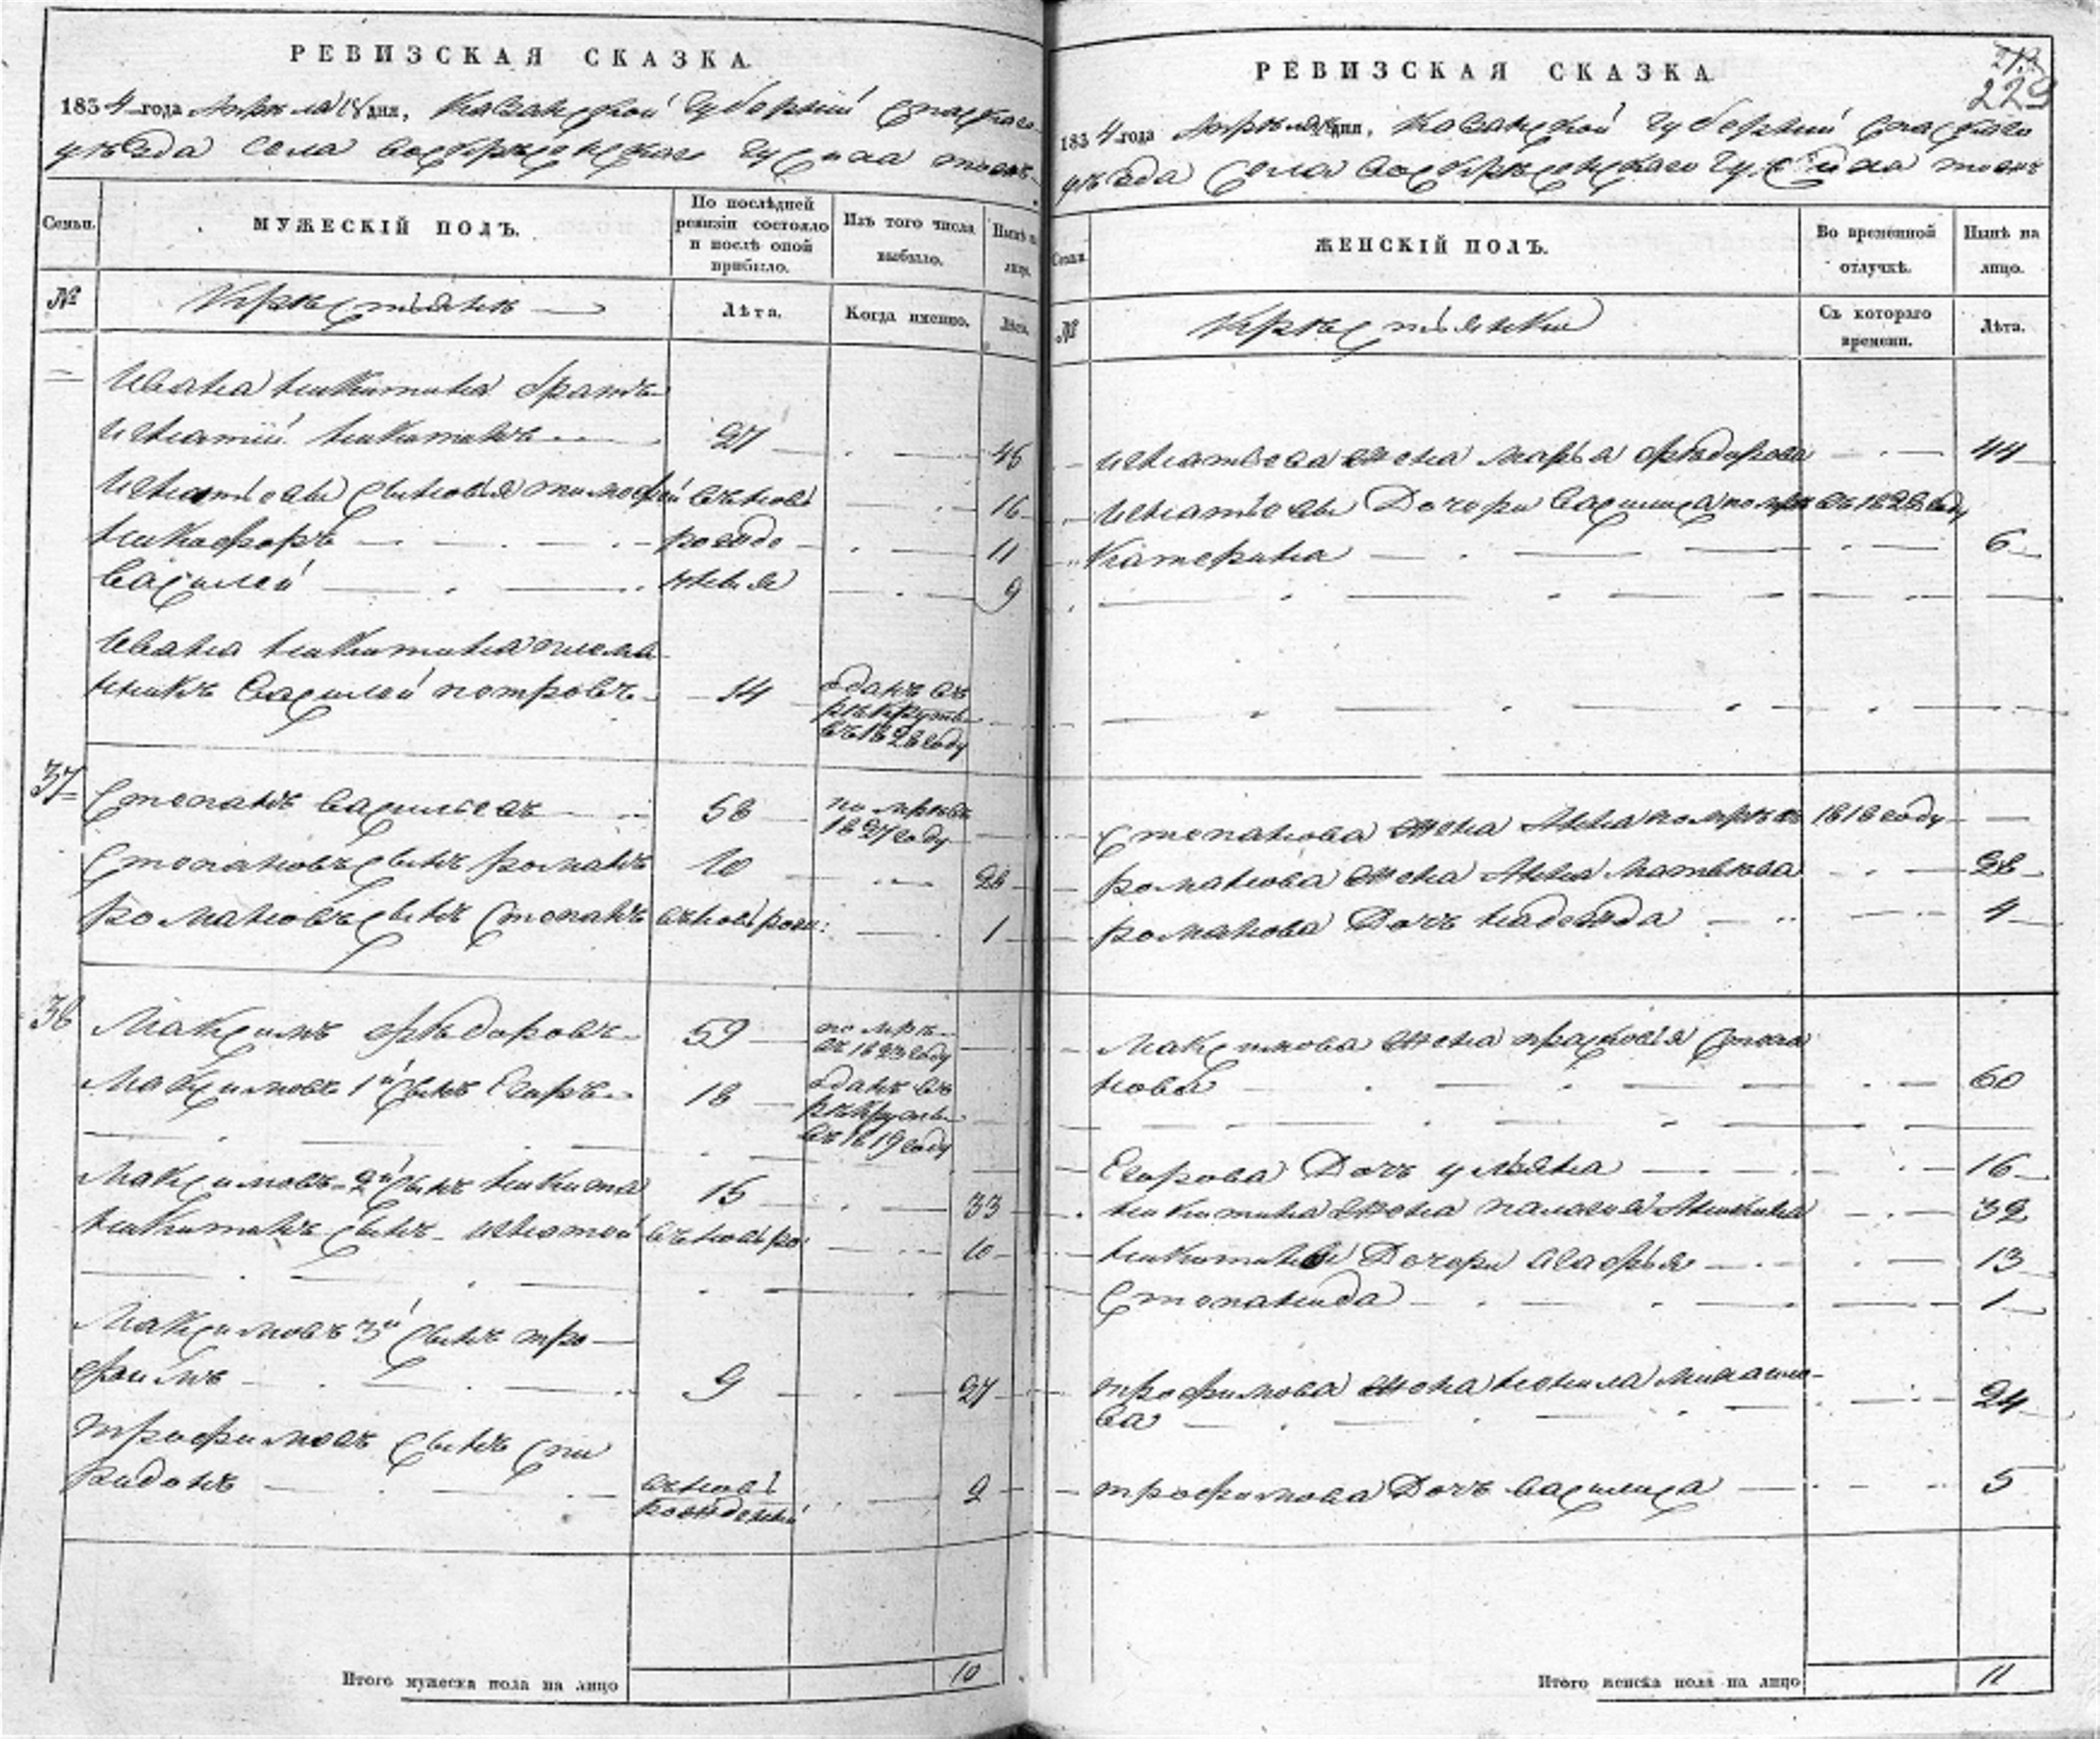 РЕВИЗСКАЯ СКАЗКА
1834 года Апреля 18 дня, Казанской Губернии Спаскаго
уезда Села Воскресенскаго
Семьи.
МУЖЕСКІЙ ПОЛЪ.
По послѣдней ревизіи состояло и послѣ оной прибыло.
Изъ того числа выбыло.
Нынѣ на лицо.
№
Крестьяне
Лѣта.
Когда именно.
Лѣта.
Ивана Никитина братъ
Игнатий Никитинъ 27 45
Игнатьевы сыновья Тимофей вновь 16
Никифоръ рожде 11
Василей нныя 9
Ивана Никитина племя
нникъ Василей Петровъ 14 вданъ въ рекруты въ 1828 году
37 Степанъ Васильевъ 58 помре въ 1827 году
Степановъ сынъ Романъ 10 28
Романовъ сынъ Степанъ вновь рож: 1
38 Максимъ Федоровъ 59 помре въ 1823 году
Максимовъ 1й сынъ Егоръ 18 вданъ въ рекруты въ 1819 году
Максимовъ 2й сынъ Никита 15 33
Никитинъ сынъ Игнатей вновь ро: 10
Максимовъ 3й сынъ Тро
фимъ 9 27
Трофимовъ сынъ Спи
ридонъ вновь рожденный 2
Итого мужеска пола на лицо 10
РЕВИЗСКАЯ СКАЗКА
229
1834 года Апреля 18 дня, Казанской Губернии Спаскаго
уезда Села Воскресенскаго
Семьи.
ЖЕНСКІЙ ПОЛЪ.
Во временной отлучкѣ.
Нынѣ на лицо.
№
Крестьянки
Съ котораго времени.
Лѣта.
Игнатьева жена Марья Федорова 44
Игнатьевы дочери Василиса помре въ 1828 году
Катерина 6
Степанова жена Анна помре въ 1818 году
Романова жена Анна Матвеева 28
Романова дочь Надежда 4
Максимова жена Прасковья Степа
нова 60
Егорова дочь Ульяна 16
Никитина жена Палагея 32
Никитины дочери Агафья 13
Степанида 1
Трофимова жена Ненила Михайло-
ва 24
Трофимова дочь Василиса 5
Итого женска пола на лицо 11